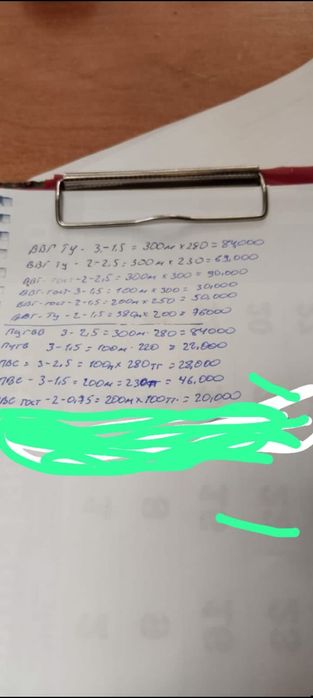 ВВГ ТУ - 3-1,5 = 300м × 280 = 84000
ВВГ ТУ - 2-2,5 = 300м × 230 = 69,000
ВВГ-гост-2-2,5 = 300м × 300 = 90,000
ВВГ-гост-3-1,5 = 100м × 300 = 30,000
ВВГ-гост-2-1,5 = 200м × 250 = 50,000
ВВГ-ТУ-2-1,5 = 380м × 200 = 76000
ПугВВ 3-2,5 = 300м · 280 = 84000
ПугВ 3-1,5 = 100м · 220 = 22,000
ПВС = 3-2,5 = 100м × 280тг = 28,000
ПВС - 3-1,5 = 200м = 230тг = 46,000
ПВС гост-2-0,75 = 200м × 100тг = 20,000